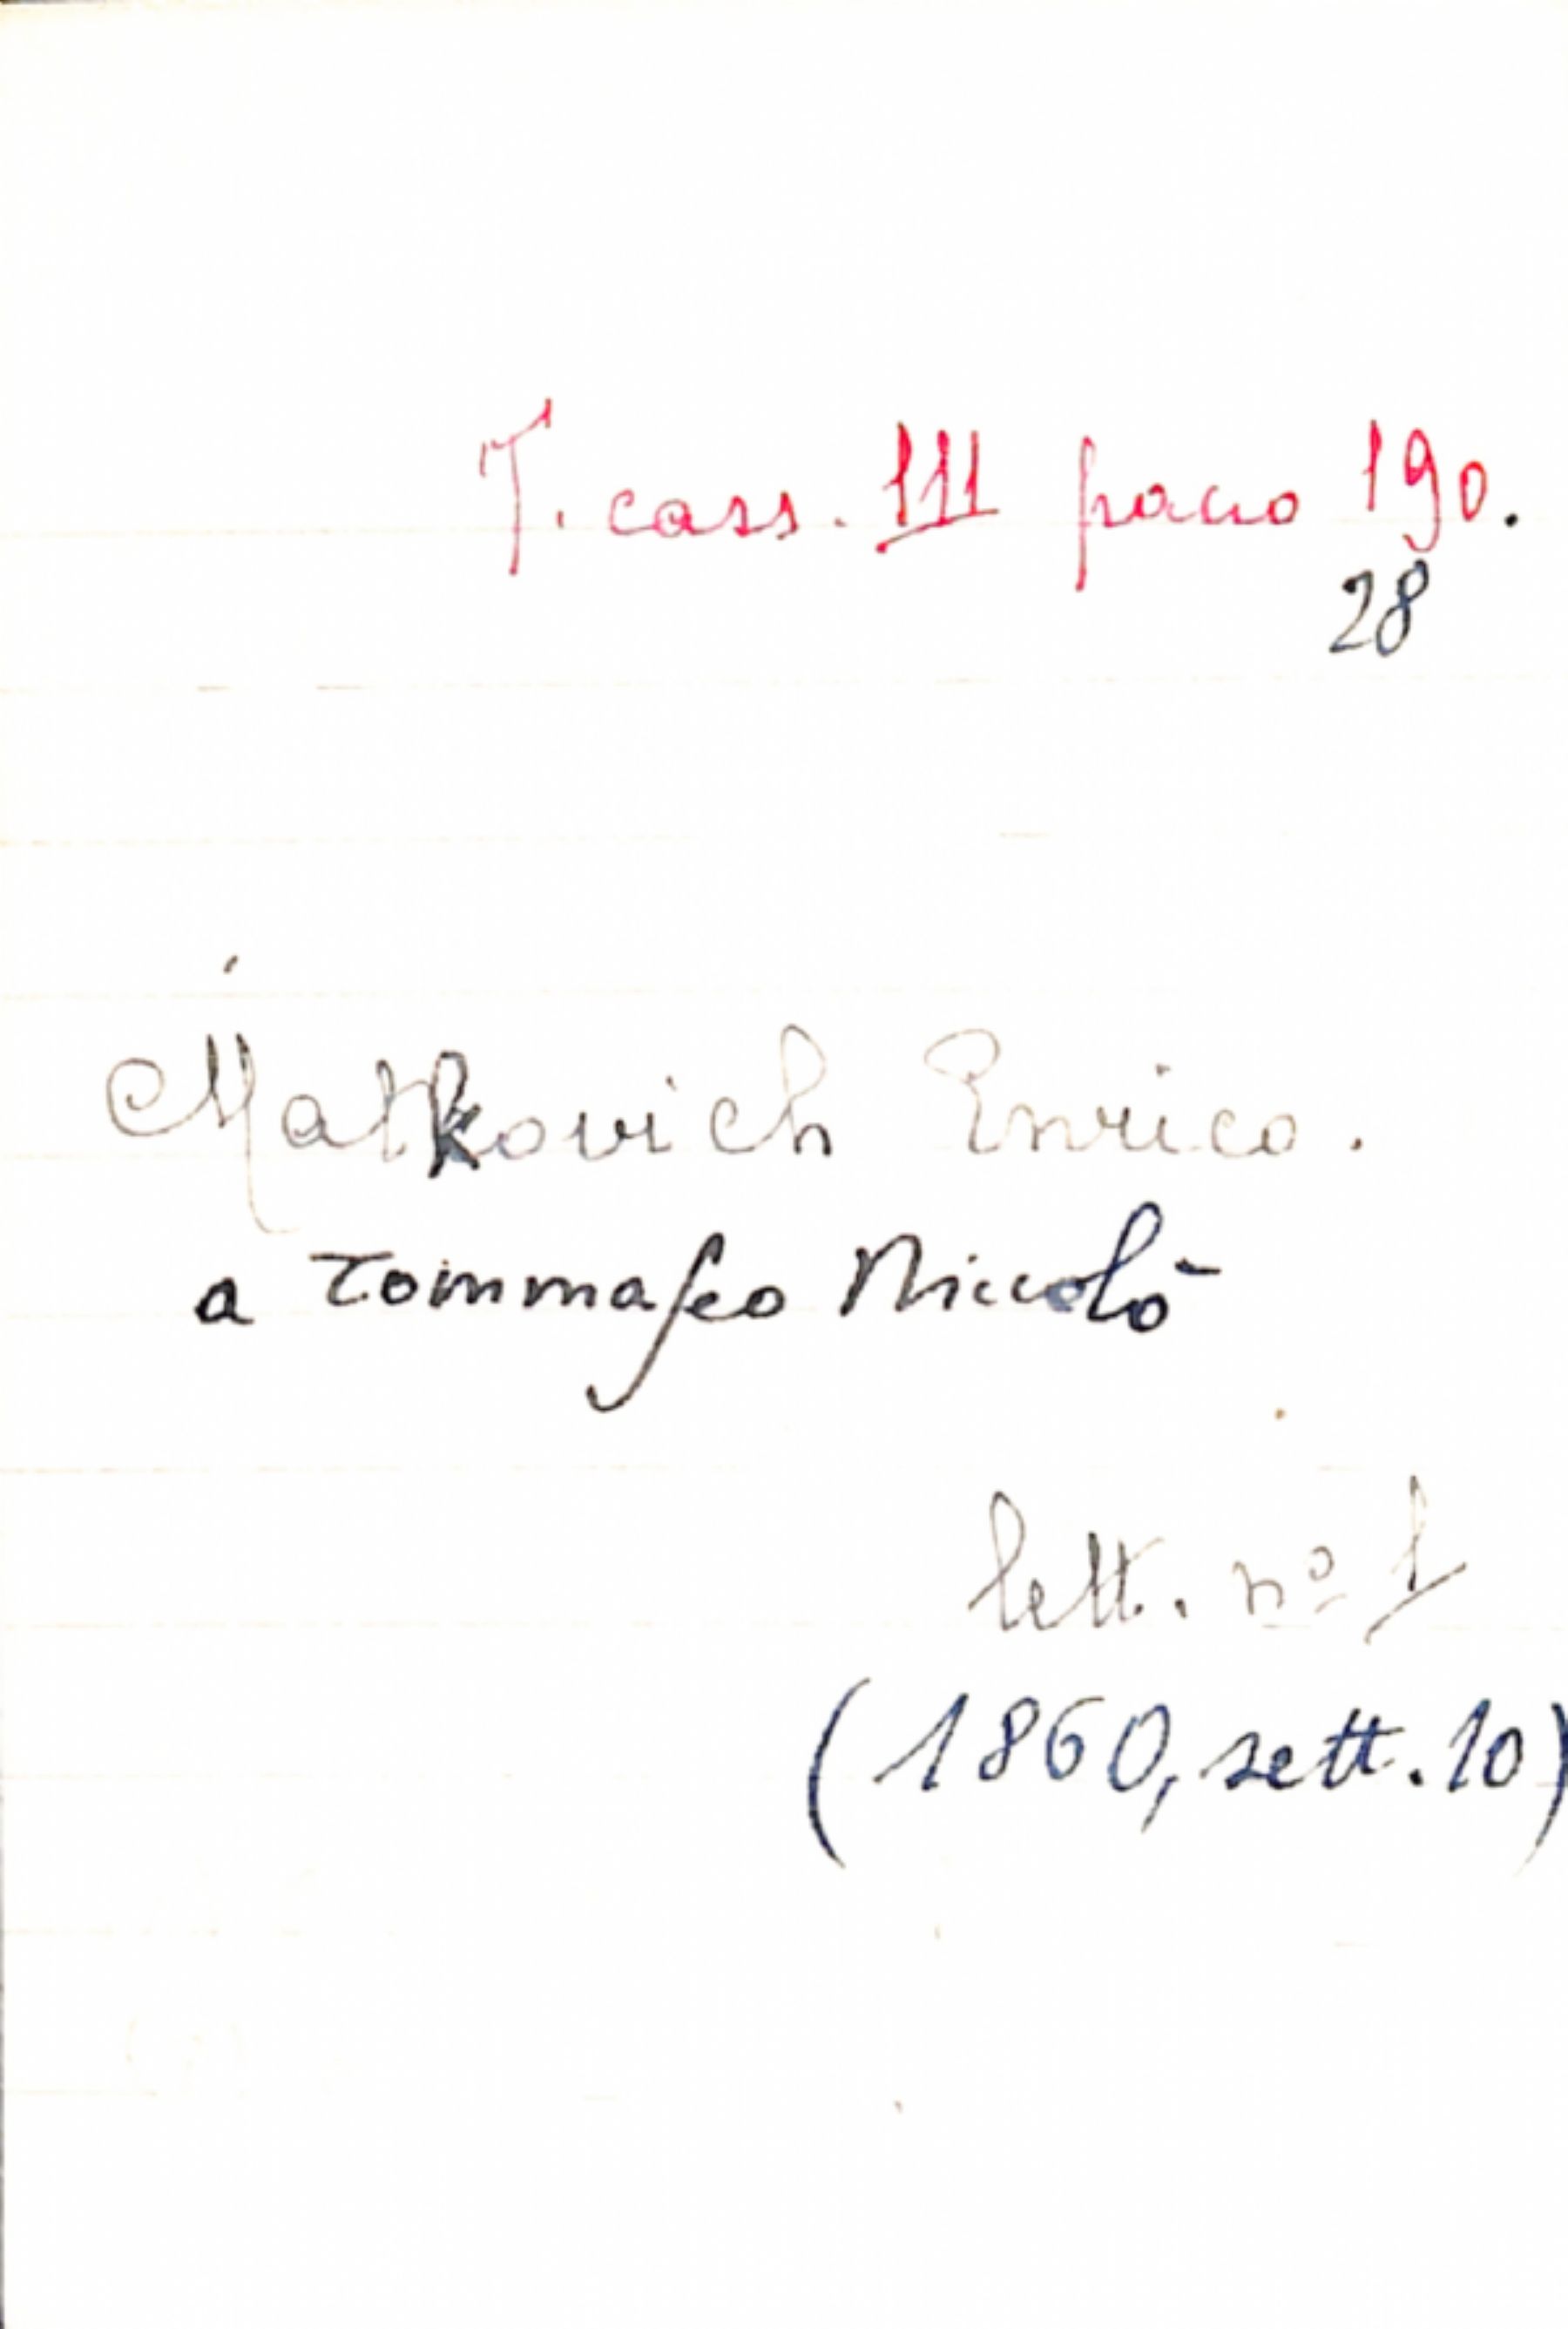 T. cass. III pacco 190.
28
Matkovich Enrico.
a Tommaseo Niccolò
lett. nº 1
(1860, sett. 10)